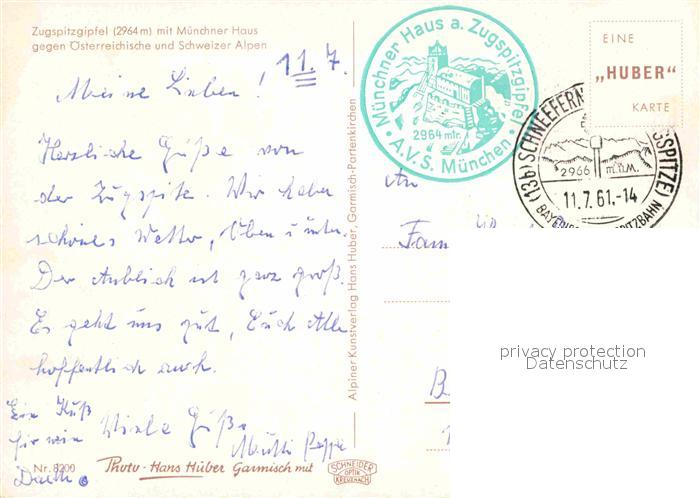 Zugspitzgipfel (2964 m) mit Münchner Haus
gegen Österreichische und Schweizer Alpen
11. 7.
Meine Lieben!
Herzliche Grüße von
der Zugspitze. Wir haben
schönes Wetter, Oben u unten.
Der Anblick ist ganz groß.
Es geht uns gut, Euch Alle
hoffentlich auch.
Viele Grüße
Mutti
Ein Kuß
für
Nr. 8200
Photo - Hans Huber Garmisch mit
SCHNEIDER
OPTIK
KREUZNACH
Alpiner Kunstverlag Hans Huber, Garmisch-Partenkirchen
Münchner Haus a. Zugspitzgipfel
2964 mtr.
A.V.S. München
EINE
„HUBER"
KARTE
(13b) SCHNEEFERN
UGSPITZE)
2966 m.ü.M.
11.7.61.-14
BAYER
ITZBAHN
An
Fam
B
privacy protection
Datenschutz